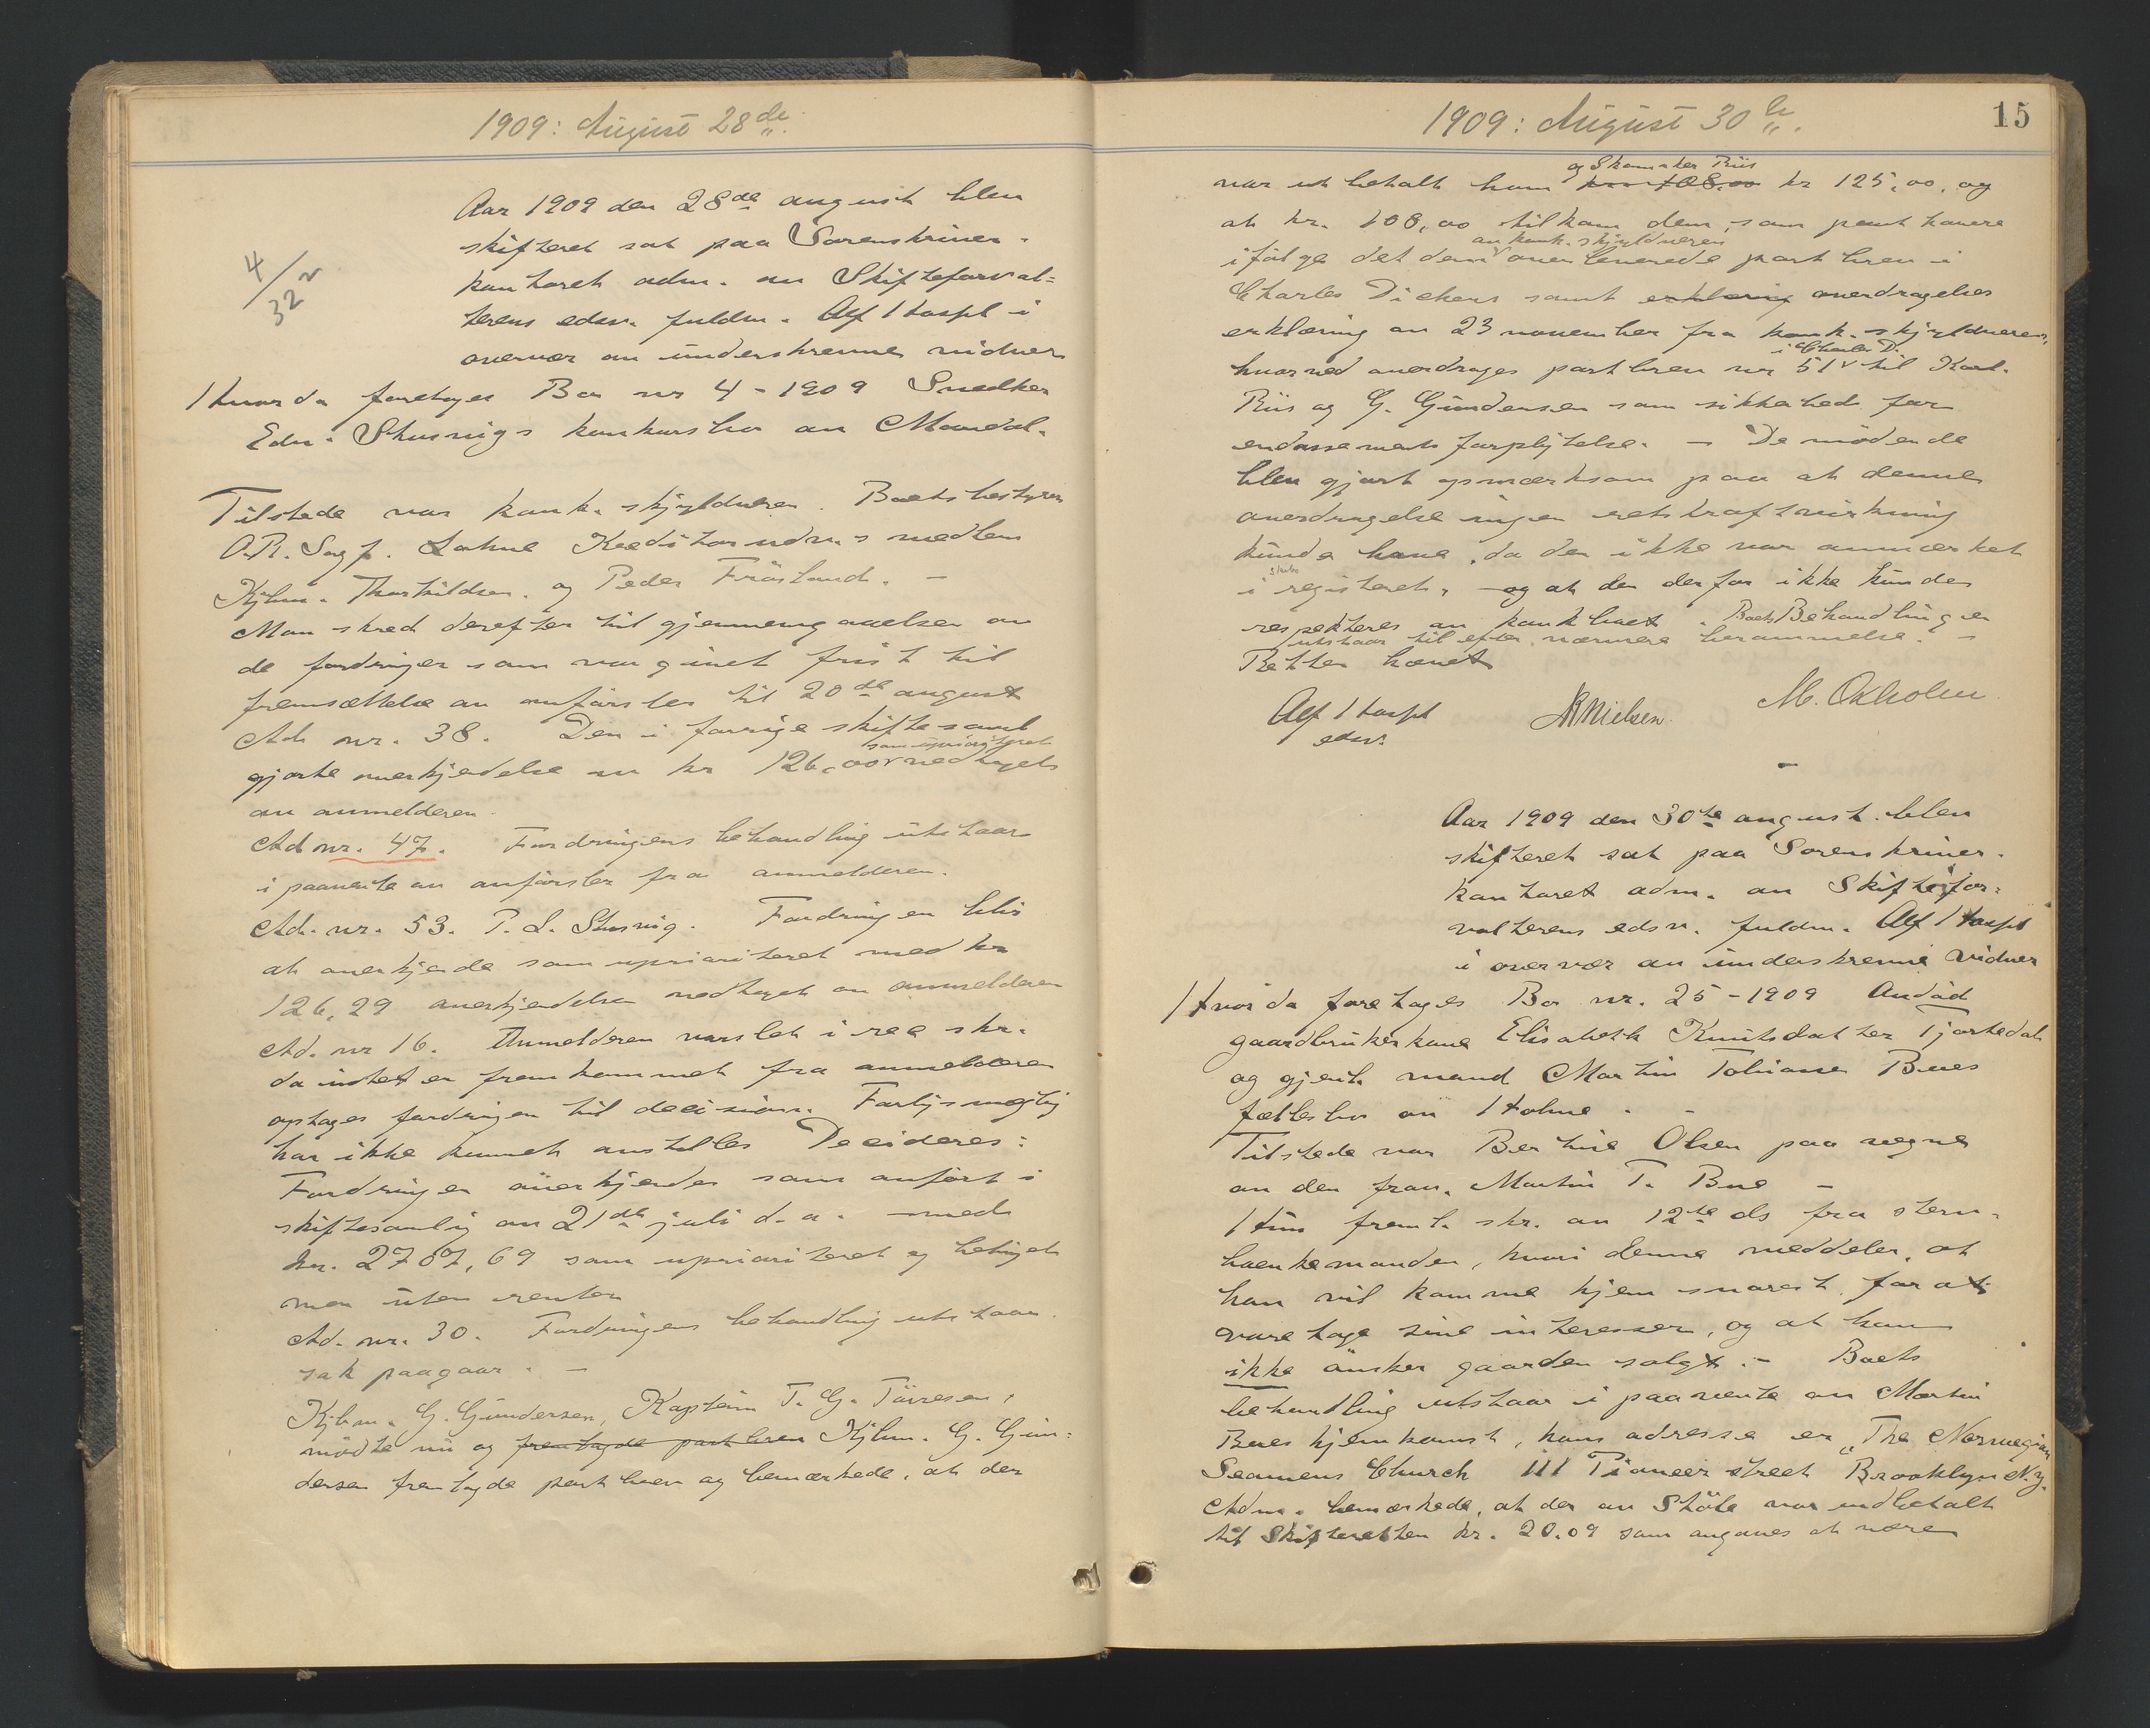 1909: August 28de
4/322
Aar 1909 den 28de august blev
skifteret sat paa Sorenskriver-
kontoret adm. av Skifteforval-
terens edsv. fuldm. Alf
overvær av underskrevne vidner
Hvorda foretoges Bo nr 4 - 1909 Snedker
Edv. konkursbo av Mandal.
Tilstede var konk. skyldneren. Boets bestyrer
O.R. Sagf. Kreditorudv.s medlem
Kjbm. Thorkildsen. og Peder Fröisland. -
Man skred derefter til gjennemgaaelsen av
de fordringer som var givet frist til
fremsættelse av anførsler til 20de august
Ad nr. 38. Den i forrige skiftesaml
som uprioritert
gjorte anerkjendelse av kr 126,00 vedtoges
av anmelderen.
Ad nr. 47. Fordringens behandling utstaar
i paavente av anførsler fra anmelderen.
Ad. nr. 53. P. L. Fordringen blir
at anerkjende som uprioriteret med kr
126,29 anerkjendelsen vedtoget av anmelderen
Ad. nr 16. Anmelderen varslet i rec skr.
da intet er fremkommet fra anmelderen
optages fordringen til decision. Forligsmægling
har ikke kunnet anstilles Decideres:
Fordringen anerkjendes som anført i
skiftesamlig av 21de juli d. a. med
kr. 2707,69 som uprioriteret og betinget
men uten renter
Ad. nr. 30. Fordringens behandling utstaar.
sak paagaar. -
Kjbm. G. Gundersen, Kaptein T. G. Törresen,
mødte nu og fremlagde partbrev Kjbm. G. Gun-
dersen fremlagde partbrev og bemærkede, at der
1909: August 30te
15
og Skomaker Riis
var utbetalt ham kr. 108.00 kr 125,00, og
at kr. 108,00 tilkom dem, som pant havere
av konk. skyldneren
ifølge det dem overleverede partbrev i
Charles Dickens samt erklæring overdragelses
erklæring av 23 november fra konk. skyldneren,
i Charles D.
hvorved overdroges partbrev nr 51 til Karl
Riis og G. Gundersen som sikkerhed for
endossements forplijtelse. - De mødende
blev gjort opmærksom paa at denne
overdragelse ingen retskraftvirkning
kunde have, da den ikke var anmærket
skibs
i registeret, og at den derfor ikke kunde
respekteres av konkboet. Boets Behandling er
utstaar til efter nærmere berammelse. -
Retten hævet
Alf
edsv.
Nielsen.
M. Oxholm
-
Aar 1909 den 30te august blev
skifteret sat paa Sorenskriver-
kontoret adm. av Skiftefor-
valterens edsv. fuldm. Alf
i overvær av underskrevne vidner
Hvorda foretoges Bo nr. 25 - 1909 Avdöd
gaardbrukerkone Elisabeth Knutsdatter Tjortedal
og gjenl. mand Martin Tobiassen Bues
fællesbo av Holme. -
Tilstede var Bertine Olsen paa vegne
av den frav. Martin T. Bue -
Hun freml. skr. av 12te ds fra sterv-
boenkemanden, hvori denne meddeler, at
han vil komme hjem snarest for at
varetage sine interesser, og at han
ikke ønsker gaarden solgt. - Boets
behandling utstaar i paavente av Martin
Bues hjemkomst, hans adresse er „The Norwegian
Seamens Church 111 Pioneer street Brooklyn N.Y.
Adm. bemærkede, at der av Støle var indbetalt
til Skifteretten kr. 20.09 som angaves at være